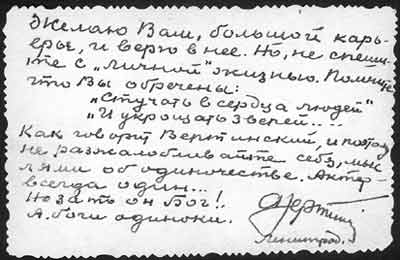 Желаю Вам, большой карь-
ерье, и верю в нее. Но, не спеши-
те с „личной" жизнью. Помните
что Вы обречены:
„Стучать в сердца людей"
„И укрощать зверей....
Как говорит Вертинский, и потому
не разжалобливайте себя, мыс-
лями об одиночестве. Актер-
всегда один...
Но зато он Бог!.
А. боги одиноки.
Ленинград.